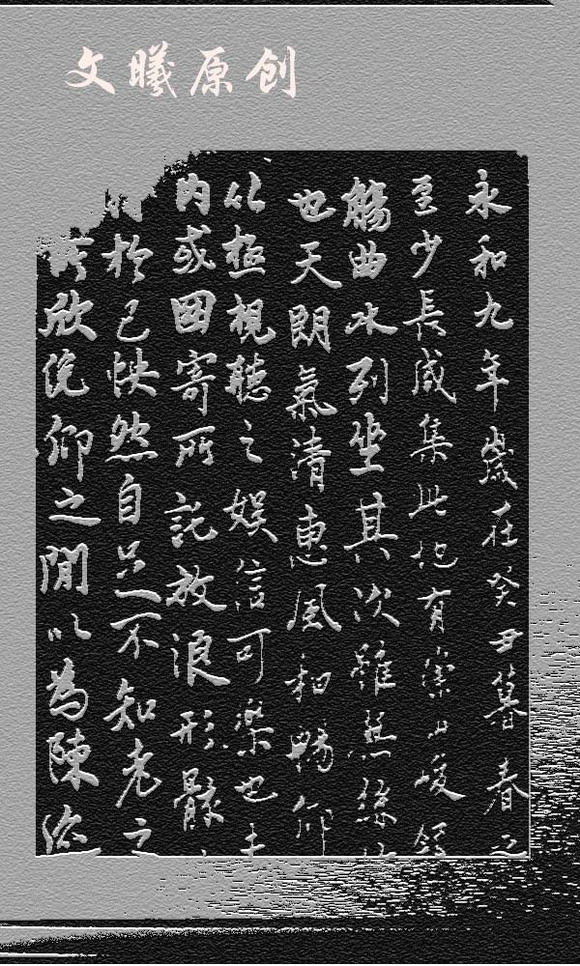 文曦原创
永和九年歲在癸丑暮春之
至少長咸集此地有崇山峻領
觴曲水列坐其次雖無絲
也天朗氣清惠風和暢仰
以極視聽之娛信可樂也夫
內或因寄所託放浪形骸
於己怏然自足不知老之
欣俛仰之閒以為陳迹